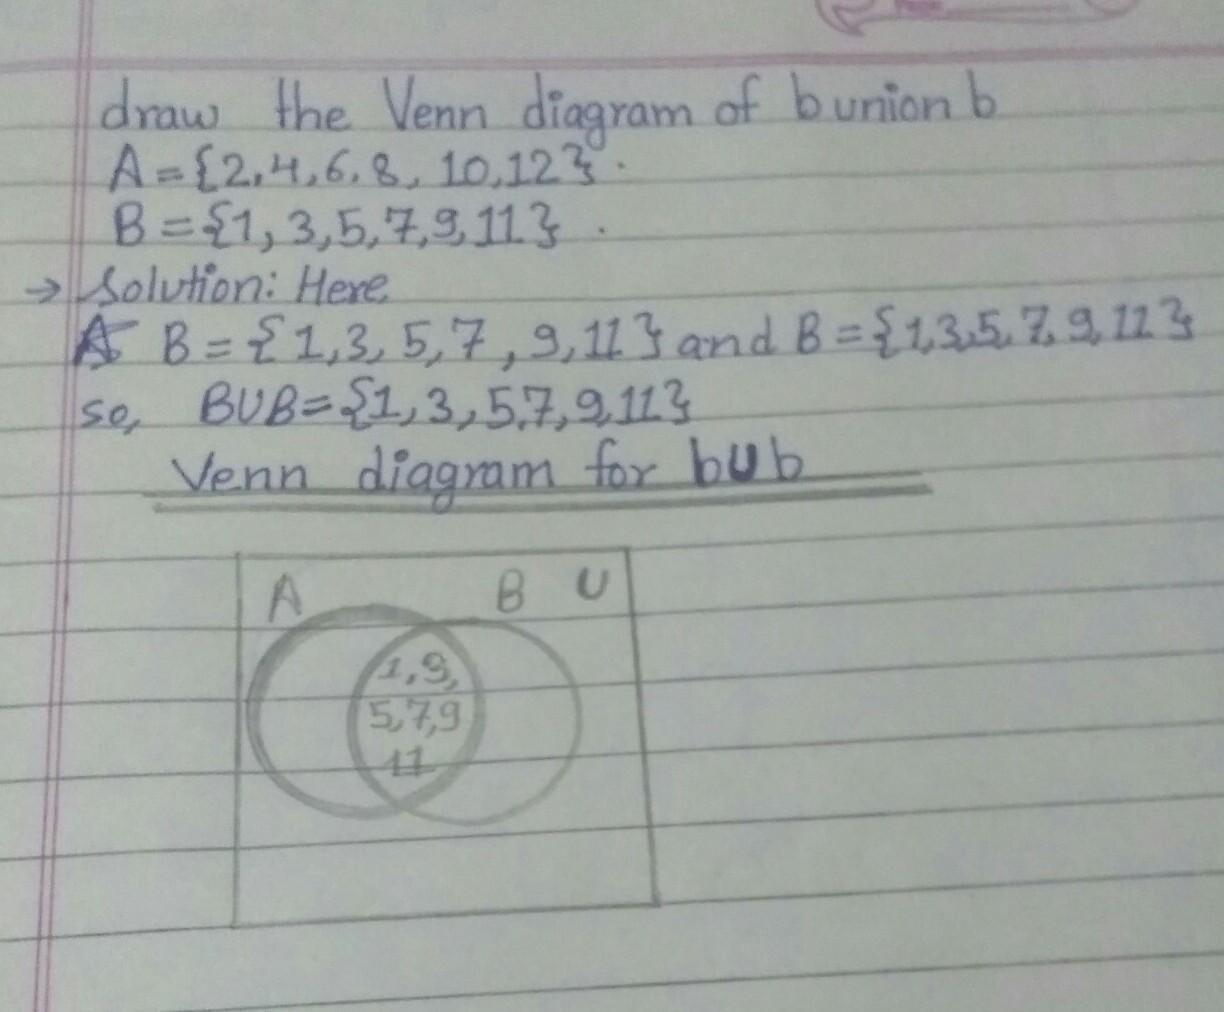 draw the Venn diagram of b union b
A = {2,4,6,8, 10,12}.
B = {1, 3,5,7,9,11}.
→ Solution: Here
B = {1,3, 5,7, 9,11} and B = {1,3,5,7,9,11}
so, BUB = {1,3,5,7,9,11}
Venn diagram for bUb
A B U
1,9,
5,7,9
11